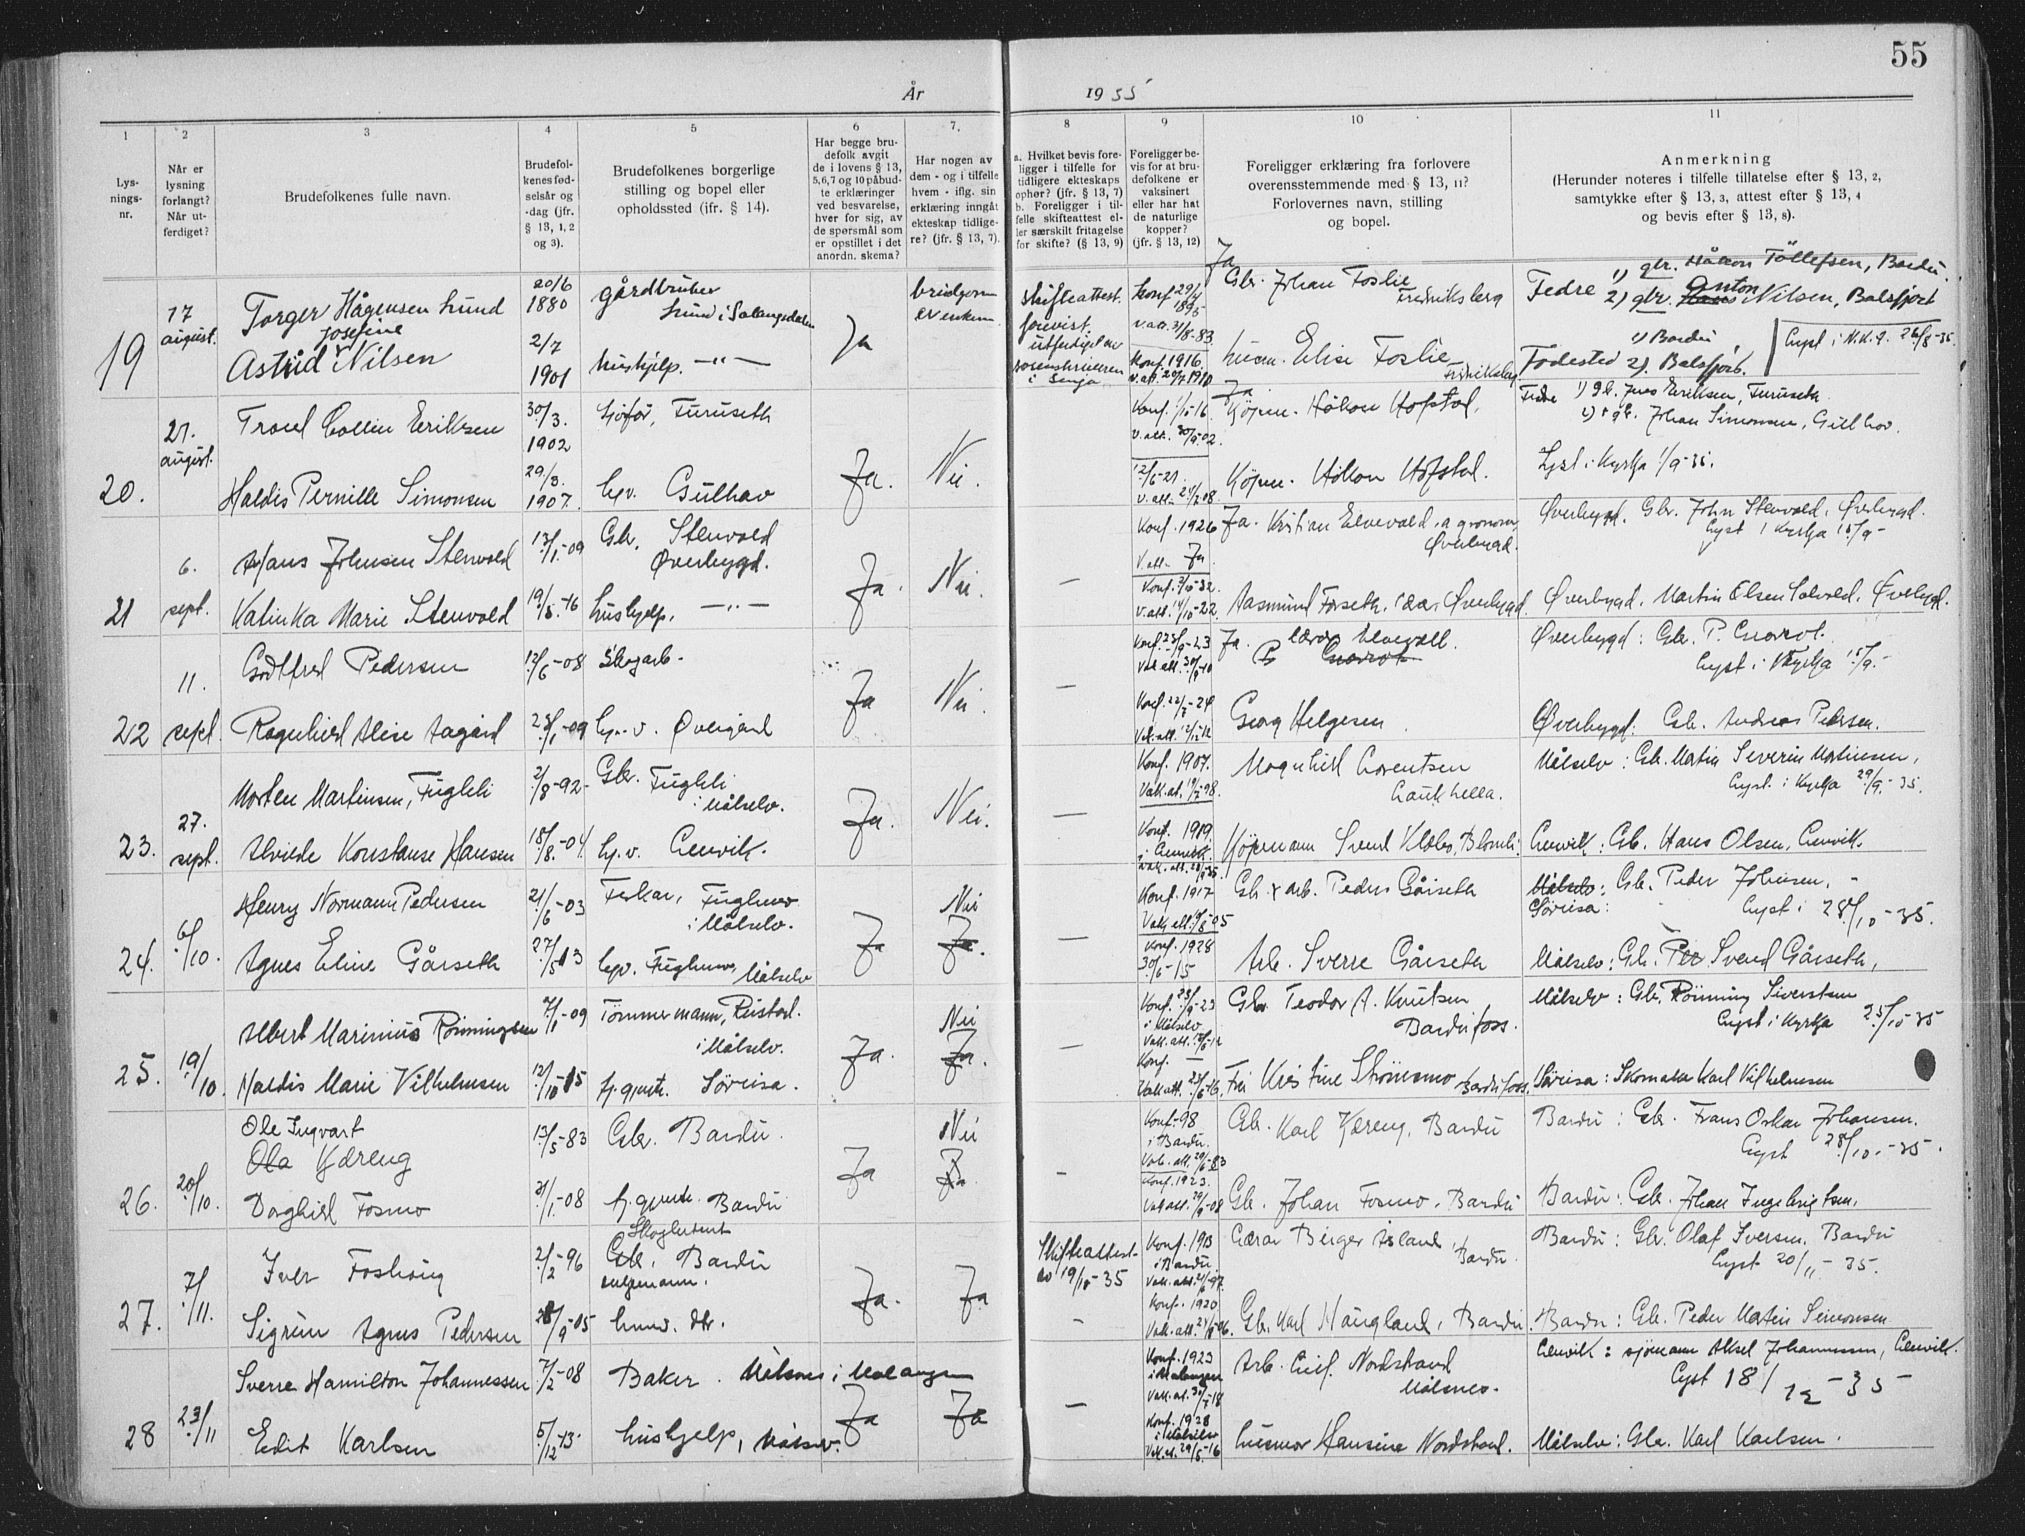 55
År 1935
1 2 3 4 5 6 7. 8 9 10 11
Lys-
nings-
nr.
Når er
lysning
forlangt?
Når ut-
ferdiget?
Brudefolkenes fulle navn.
Brudefol-
kenes fød-
selsår og
-dag (jfr.
§ 13, 1, 2
og 3).
Brudefolkenes borgerlige
stilling og bopel eller
opholdssted (ifr. § 14).
Har begge bru-
defolk avgit
de i lovens § 13,
5,6,7 og 10 påbud-
te erklæringer
ved besvarelse,
hver for sig, av
de spørsmål som
er opstillet i det
anordn. skema?
Har nogen av
dem - og i tilfelle
hvem - iflg. sin
erklæring inngåt
ekteskap tidlige-
re? (jfr. § 13, 7).
a. Hvilket bevis fore-
ligger i tilfelle for
tidligere ekteskaps
ophør? (jfr. § 13, 7)
b. Foreligger i til-
felle skifteattest el-
ler særskilt fritagelse
for skifte? (§ 13, 9)
Foreligger be-
vis for at bru-
defolkene er
vaksinert
eller har hat
de naturlige
kopper?
(jfr. § 13, 12)
Foreligger erklæring fra forlovere
overensstemmende med § 13, 11?
Forlovernes navn, stilling
og bopel.
Anmerkning
(Herunder noteres i tilfelle tillatelse efter § 13, 2,
samtykke efter § 13, 3, attest efter § 13, 4
og bevis efter § 13, 8).
19
17
august.
Torger Hågensen Lund
20/6
1880
gårdbruker
Lund i Salangsdalen
Ja
brudgom
enkem
skifteattest.
forevist.
utferdiget av
sorenskriveren
i Senja
Konf 29/4
1895
v.att. 31/8-83
Ja
Gbr. Johan Foslie
Fredriksberg
Fedre 1) gbr. Håkon Tollefsen, Bardu.
2) gbr. Anton Nilsen, Balsfjord
Josefine
Astrid Nilsen
2/7
1901
hushjelp. —"—
Konf. 1916
v.att. 20/7 1910
husm. Elise Foslie
Fredriksberg
1) Bardu
Fødested 2). Balsfjord.
Lyst i N.K. 9. 26/8-35
20.
21.
august.
Trond Collin Eriksen
30/3.
1902
Sjåfør, Furuseth
Ja.
Nei.
Konf. 1/5-16
v. att. 30/9.02.
Ja
Kjøpm. Håkon Hofstad.
Fedre 1) gb. Jens Eriksen, Furuseth
2) gb. Johan Simonsen, Gulhav.
Haldis Pernille Simonsen
29/3.
1907.
hv. Gulhav
12/6-21.
v. att. 24/2 08.
Kjøpm. Håkon Hofstad.
Lyst i Kyrkja 1/9-35.
21
6.
sept.
Hans Johnsen Stenvold
13/1-09
Gbr. Stenvold
Øverbygd.
Ja.
Nei.
—
Konf. 1926
V.att. Ja
Ja. Kristian Elvevold, agronom,
Øverbygd.
Øverbygd. Gbr. John Stenvold, Øverbygd.
Lyst i Kyrkja 15/9-
Katinka Marie Stenvold
19/5.-16
hushjelp, —"—
Konf. 2/10-32
v.att. 14/10-22
Aasmund Forseth, lær. Øverbygd
Øverbygd. Martin Olsen Solvold, Øverbygd.
22
11.
sept.
Godtfred Pedersen
12/6-08
Skogarb-
Ja
Nei.
—
Konf. 23/9-23
Vak att. 30/9-10
Ja. Lærer Elvevoll
Øverbygd: Gbr. P.
Lyst i Kyrkja 15/9.-
Ragnhild Alise Aagård
23/1-09
hv. Øvergård
Konf. 22/7-24
Georg Helgesen
Øverbygd: Gbr. Andreas Pedersen.
23.
27.
sept.
Morten Martinsen, Fugleli
2/8-92-
Gbr. Fugleli
i Målselv.
Ja.
Nei.
—
Konf. 1907.
Magnhild Lorentsen
Laukhella.
Målselv: Gbr. Martin Severin Martinsen,
Lyst. i Kyrkja 29/9-35.
Alvilde Konstanse Hansen
18/8.-04.
hv. Lenvik.
Konf. 1919.
i Lenvik.
Kjøpmann Svend Klæbo, Blomli
Lenvik: Gb. Hans Olsen, Lenvik.
24.
6/10.
Henry Normann Pedersen
21/6-03
Feskar, Fuglmo
i Målselv.
Ja
Nei
Ja.
—
Konf. 1917
Gbr & arb. Peder Gårseth
Målselv: Gbr. Peder Johnsen, -
Sørreisa: Lyst i 28/10-35.
Agnes Eline Gårseth
27/5 13
hv. Fuglmo, Målselv
Konf. 1928
30/6-15
Arb. Sverre Gårseth
Målselv: Gb. Per Svend Gårseth,
25.
19/10.
Albert Marinius Rønningsen
7/1-09
Tømmermann, Rustad.
i Målselv.
Ja.
Nei
Ja.
—
Konf. 23/9-23
i Målselv
Gbr. Teodor A. Knutsen
Bardufoss.
Målselv: Gb. Rønning Sivertsen
Lyst i Kyrkja 25/10-35
Haldis Marie Vilhelmsen
12/10-15
hj. gjente. Sørreisa.
Konf. —
Vakatt. 23/6-16.
Frk Kristine Strømsmo Bardufoss.
Sørreisa: Skomaker Karl Vilhelmsen
26.
20/10.
Ole Ingvart
Ola Kjæreng
13/5-83
Gbr. Bardu.
Ja
Nei
Ja.
—
Konf.-98
i Bardu.
Vak. att. 29/6-83
Gb. Karl Kjæreng, Bardu
Bardu: Gb. Frans Oskar Johansen.
Lyst 28/10.-35.
Daghild Fosmo
21/1-08
hj. gjente. Bardu
Konf. 1923.
Vak att. 29/6-08
Gb. Johan Fosmo. Bardu
Bardu: Gb. Johan Ingebrigtsen.
27.
7/11.
Iver Foshaug
2/2-96
Skogbetjent
Gbr. Bardu
enkemann.
Ja.
Ja
Skifteattest
av 19/10-35
Konf. 1913
i Bardu.
Lærar Birger Åsland,
Bardu.
Bardu: Gbr. Olaf Iversen, Bardu
Lyst 20/11-35.
Sigrun Agnes Pedersen
28/9-05
husm. dtr.
-
Konf. 1920
Gb. Karl Haugland, Bardu.
Bardu: Gb. Peder Martin Simonsen
28
23/11
Sverre Hamilton Johannessen
7/2-08
Baker. Målsnes i Malangen
Ja
Ja
—
Konf. 1923
i Malangen
Vak. at. 30/7-18
Arb. Leif. Nordstrand
Målsnes.
Lenvik: sjømann Aksel Johannessen, Lenvik.
Lyst 18/12-35
Edit Karlsen
5/12-13.
hushjelp, Målselv.
Konf. 1928
i Målselv
Vak. at. 29/5-16
husmor Hansine Nordstrand.
Målselv: Gbr. Karl Karlsen.